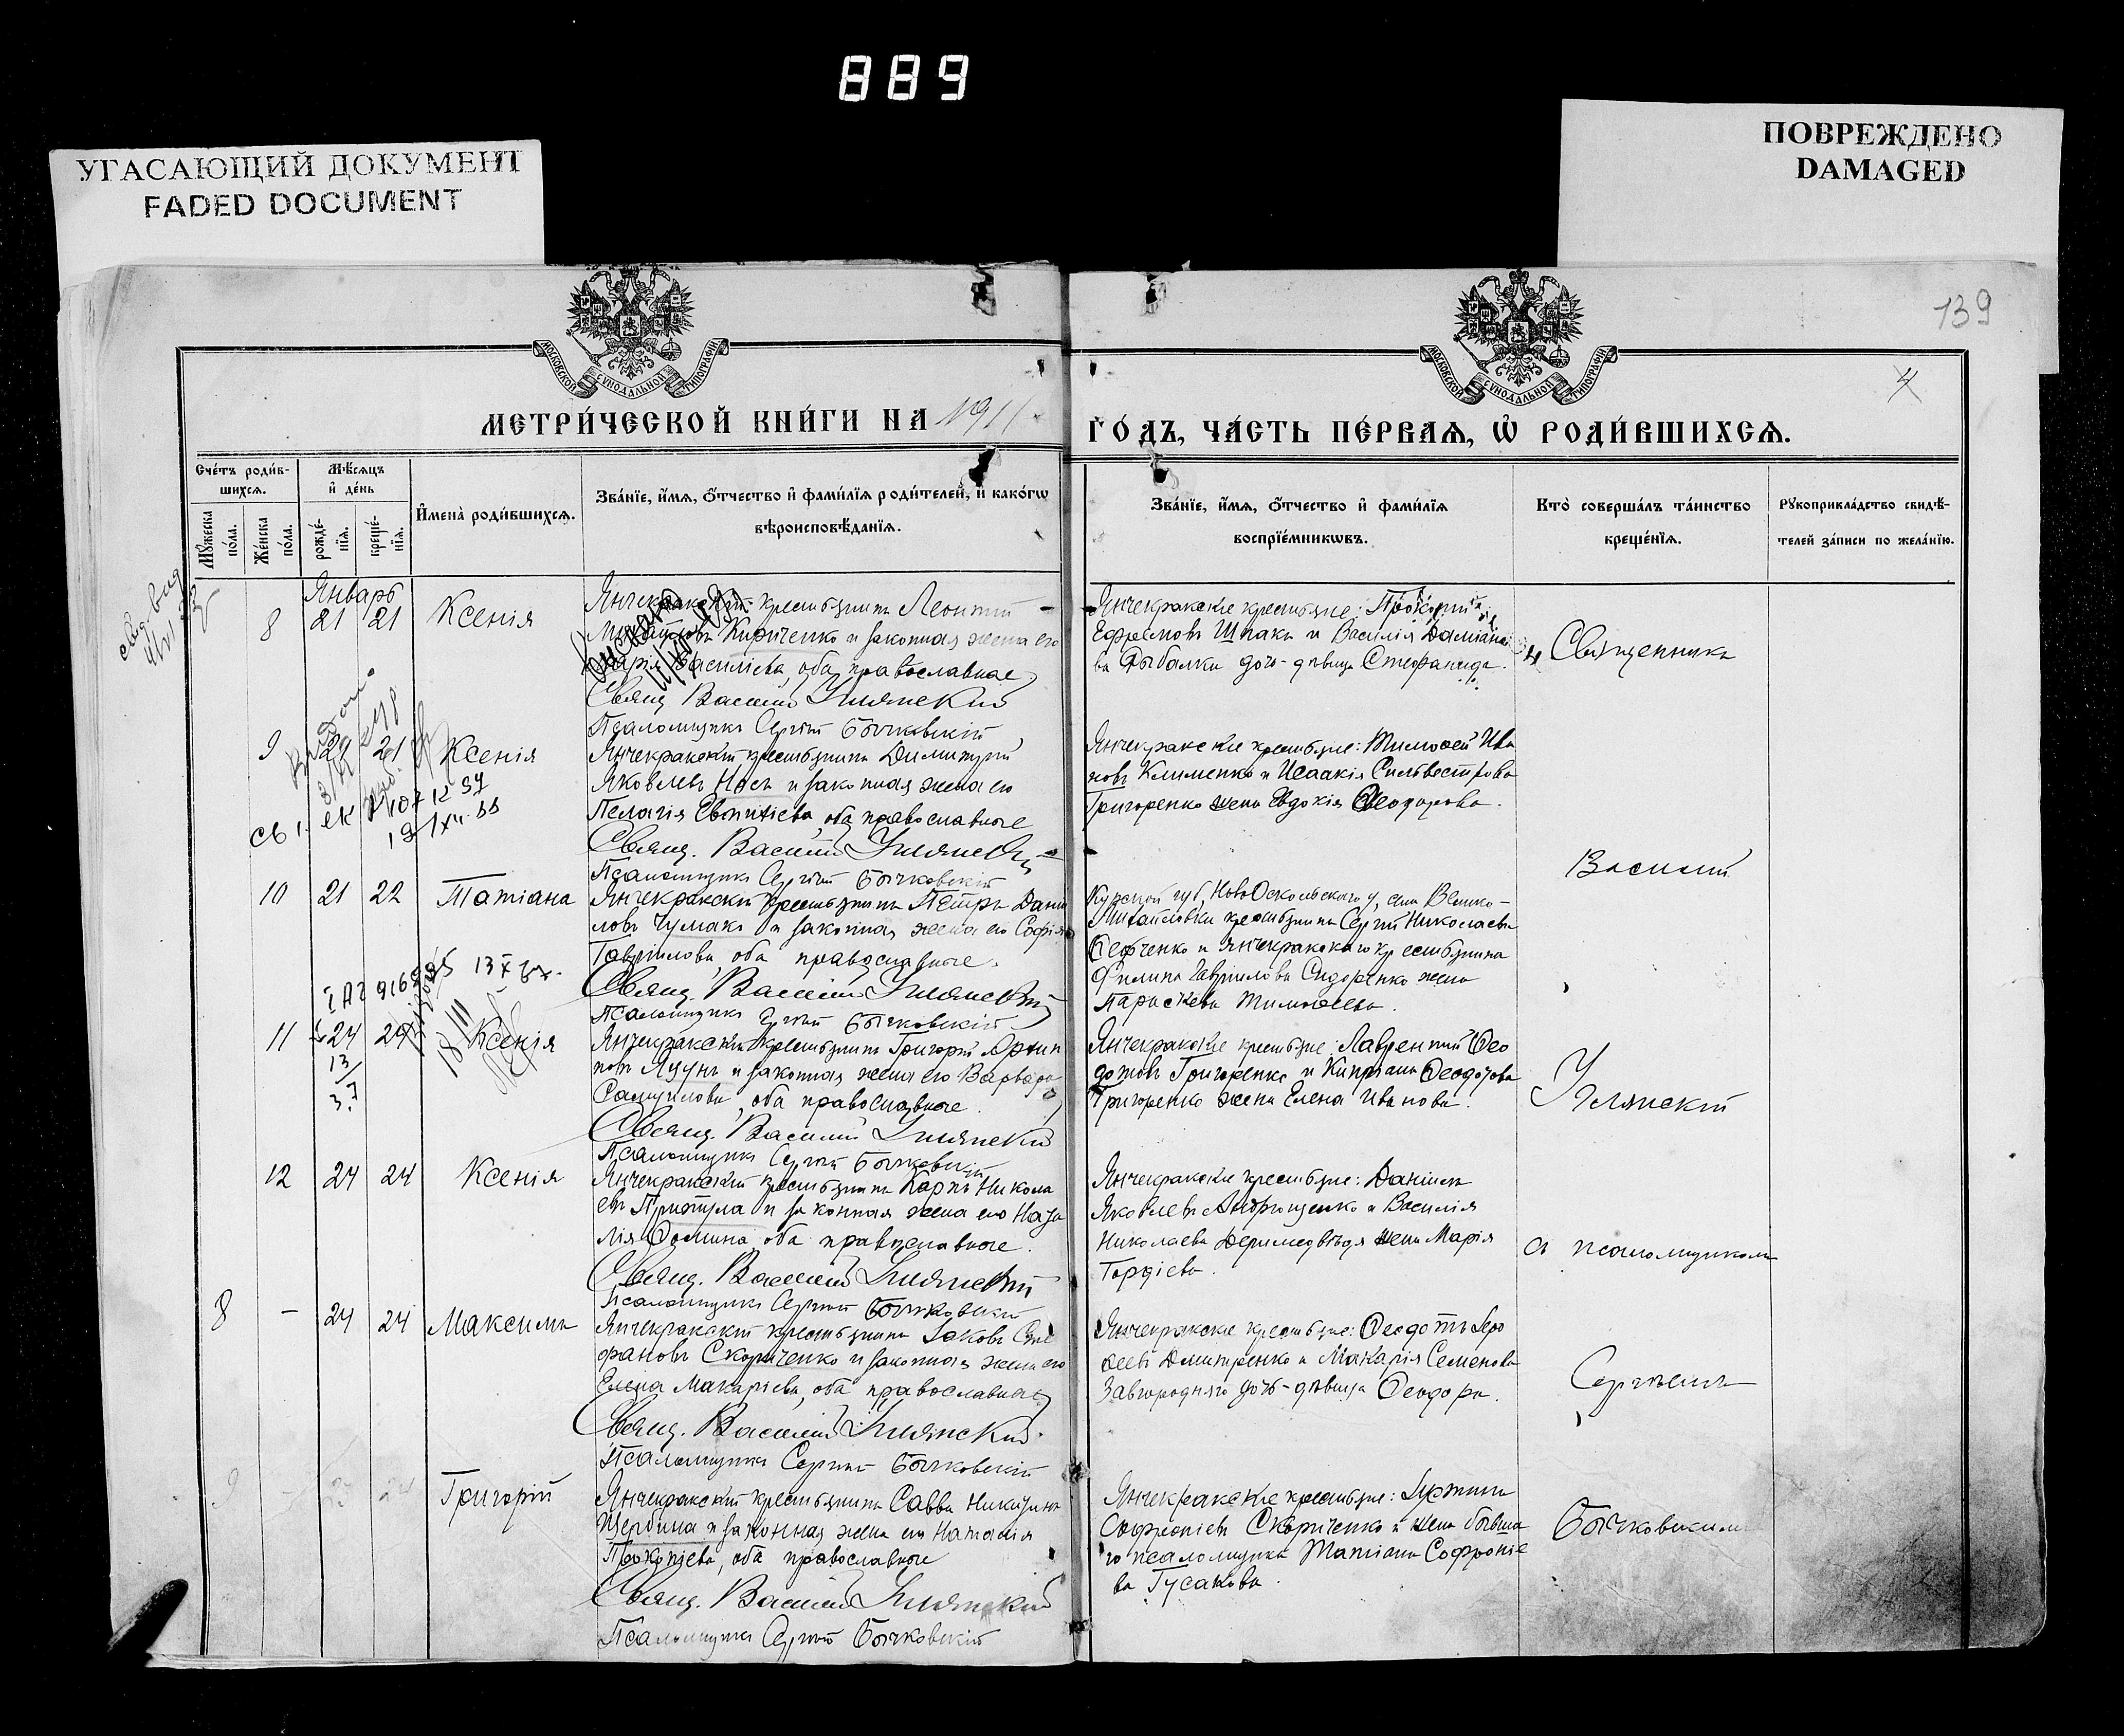 889
УГАСАЮЩИЙ ДОКУМЕНТ
FADED DOCUMENT
ПОВРЕЖДЕНО
DAMAGED
139
4
МОСКОВСКОЙ СѴНОДАЛЬНОЙ ТИПОГРАФІИ
МОСКОВСКОЙ СѴНОДАЛЬНОЙ ТИПОГРАФІИ
МЕТРИ́ЧЕСКОЙ КНИ́ГИ НА 1911
ГО́ДЪ, ЧА́СТЬ ПЕ́РВАѦ, Ѡ҆ РОДИ́ВШИХСѦ.
Сче́тъ роди́в-
шихсѧ.
Мꙋ́жеска
по́ла.
Же́нска
по́ла.
Мѣ́сѧцъ
и҆ де́нь
рожде́-
нїѧ.
креще́-
нїѧ.
И҆мена̀ роди́вшихсѧ.
Зва́нїе, и҆́мѧ, ѻ҆́тчество и҆ фами́лїѧ роди́телей, и҆ како́гѡ
вѣроисповѣ́данїѧ.
Зва́нїе, и҆́мѧ, ѻ҆́тчество и҆ фами́лїѧ
воспрїе́мникѡвъ.
Кто̀ соверша́лъ та́инство
креще́нїѧ.
Рꙋкоприкла́дство свидѣ́-
телей за́писи по жела́нїю.
Январь
8 21 21 Ксенія
Янчекракскій крестьянинъ Леонтій
Кириченко и законная жена его
Марія Василіева, оба православные
Свящ. Василій Улянскій
Псаломщикъ Сергій Бычковскій
Янчекракские крестьяне: Прокопій
Ефремовъ Шпакъ и Василія Даміано
ва Рыбалки дочь-дѣвица Стефанида.
Священникъ
9 21 21 Ксенія
Янчекракскій крестьянинъ Димитрій
Яковлевъ Носъ и законная жена его
Пелагія Евфиміева, оба православные
Свящ. Василій Улянскій
Псаломщикъ Сергій Бычковскій
Янчекракские крестьяне: Тимофей Ива
новъ Клименко и Исаакія Сильвестрова
Григоренко жена Евдокія Ѳеодорова.
Василій
10 21 22 Татіана
Янчекракскій крестьянинъ Петръ Дани
ловъ Чумакъ и законная жена его Софія
Гавріилова, оба православные.
Свящ. Василій Улянскій
Псаломщикъ Сергій Бычковскій
Курской губ, НовоОскольскаго у, села Велико-
Михайловки крестьянинъ Сергій Николаевъ
и Янчекракскаго крестьянина
Филиппа Гавріилова Сидоренко жена
Параскева Тимофеева.
11 24 24 Ксенія
13
Янчекракскій крестьянинъ Григорій Архип
повъ и законная жена его Варвара
Самуилова, оба православные.
Свящ. Василій Улянскій
Псаломщикъ Сергій Бычковскій
Янчекракские крестьяне: Лаврентій Ѳео
дотовъ Григоренко и Кипріана Ѳеодотова
Григоренко жена Елена Иванова.
Улянскій
12 24 24 Ксенія
Янчекракскій крестьянинъ Карпъ Никола
евъ Притула и законная жена его Ната
лія Ѳомина оба православные.
Свящ. Василій Улянскій
Псаломщикъ Сергій Бычковскій
Янчекракские крестьяне: Даніилъ
Яковлевъ Андрющенко и Василія
Николаева Деримедвѣдя жена Марія
Гордіева.
съ псаломщикомъ
8 - 24 24 Максимъ
Янчекракскій крестьянинъ Іаковъ Сте
фановъ Скориченко и законная жена его
Елена Макаріева, оба православные
Свящ. Василій Улянскій
Псаломщикъ Сергій Бычковскій
Янчекракские крестьяне: Ѳеодотъ Еро
феевъ Дмитренко и Макарія Семенова
Завгороднего дочь-дѣвица Ѳеодора.
Сергіемъ
9 - 24 Григорій
Янчекракскій крестьянинъ Савва Никитинъ
Щербина и законная жена его Наталія
Прокопіева, оба православные
Свящ. Василій Улянскій
Псаломщикъ Сергій Бычковскій
Янчекракские крестьяне: Іустинъ
Софроніевъ Скориченко и жена бывша
го псаломщика Татіана Софроніе
ва Гусакова.
Бычковскимъ